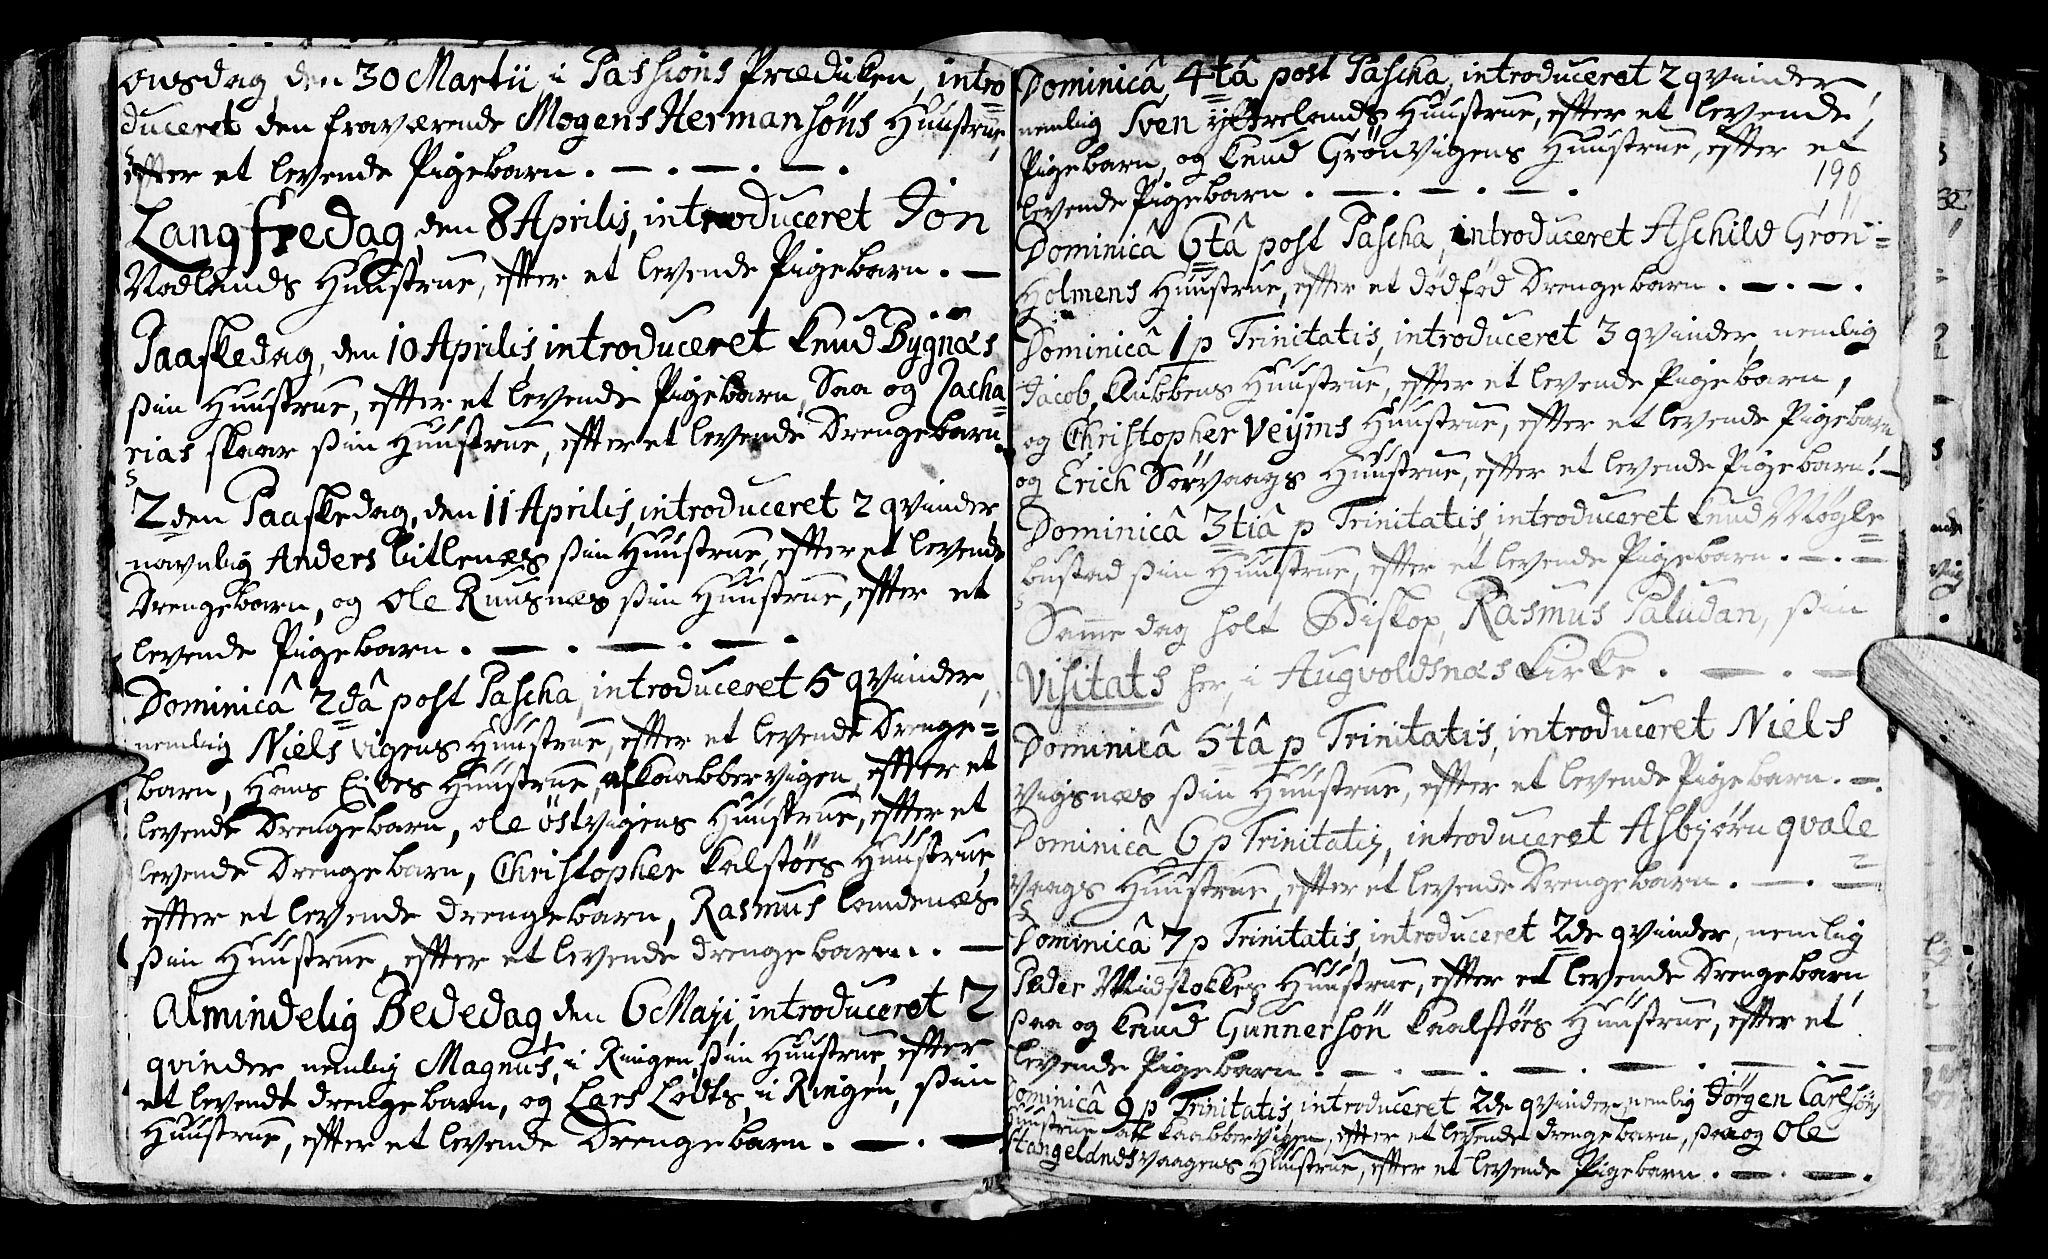 onsdag, den 30 Martii, i Passions Prædiken, intro=
duceret den fraværende Mogens Hermansöns Huustrue,
efter et levende Pigebarn. — . — . — .
Langfredag, den 8 Aprilis, introduceret Jon
Nodlands Huustrue, efter et levende Pigebarn. —
Paaskedag, den 10 Aprilis, introduceret Knud Bygnæs
sin Huustrue, efter et levende Pigebarn, Saa og Zacha=
rias skaar sin Huustrue, efter et levende Drengebarn.
2den Paaskedag, den 11 Aprilis, introduceret 2 qvinder
navnlig Anders Litlenæs sin Huustrue, efter et levende
Drengebarn, og Ole Ruusnæs sin Huustrue, efter et
levende Pigebarn. — . — . — .
Dominicâ 2dâ post Pascha, introduceret 5 qvinder,
nemlig Niels vigens Huustrue, efter et levende Drenge=
barn, Hans Eides Huustrue, af Kaabbervigen, efter et
levende Drengebarn, ole östvigens Huustrue, efter et
levende Drengebarn, Christopher Kalstörs Huustrue,
efter et levende drengebarn, Rasmus Londenæs
sin Huustrue, efter et levende drengebarn. . —
Almindelig Bededag, den 6 Maji, introduceret 2
qvinder nemlig Magnus, i Ringen, sin Huustrue, efter
et levende drengebarn, og Lars Lodts, i Ringen, sin
Huustrue, efter et levende Drengebarn. — . —
Dominicâ 4tâ post Pascha, introduceret 2 qvinder,
nemlig Sven yttrelands Huustrue, efter et levende
Pigebarn, og Knud Grönvigens Huustrue, efter et
190
levende Pigebarn. — . — . — .
Dominicâ 6tâ post Pascha, introduceret Aschild Grön=
Holmens Huustrue, efter et dödföd Drengebarn. — . — .
Dominicâ 1 p Trinitatis, introduceret 3 qvinder, nemlig
Jacob Klubbens Huustrue, efter et levende Pigebarn,
og Christopher Veyms Huustrue, efter et levende Pigebarn
og Erich Sörvaags Huustrue, efter et levende Pigebarn. —
Dominicâ 3tiâ p Trinitatis, introduceret Knud Mögle=
bustad sin Huustrue, efter et levende Pigebarn. — . —
Samme dag holt Biskop, Rasmus Paludan, sin
Visitats her, i Augvoldsnæs Kirke. — . —
Dominicâ 5tâ p Trinitatis, introduceret Niels
Vigsnæs sin Huustrue, efter et levende Pigebarn. — .
Dominicâ 6 p Trinitatis, introduceret Asbjörn qvale=
vaags Huustrue, efter et levende Drengebarn. — . —
Dominicâ 7 p Trinitatis, introduceret 2de qvinder, nemlig
Peder Midstokkes Huustrue, efter et levende Drengebarn
saa og Knud Gunnersön Kaalstörs Huustrue, efter et
levende Pigebarn. — . — . — . — . — . —
Dominicâ 9 p Trinitatis, introduceret 2de qvinder, nemlig Jörgen Carlsöns
Huustrue af Kaabbervigen, efter et levende drengebarn, saa og Ole
Stangelandsvaagens Huustrue, efter et levende Pigebarn. — . — .